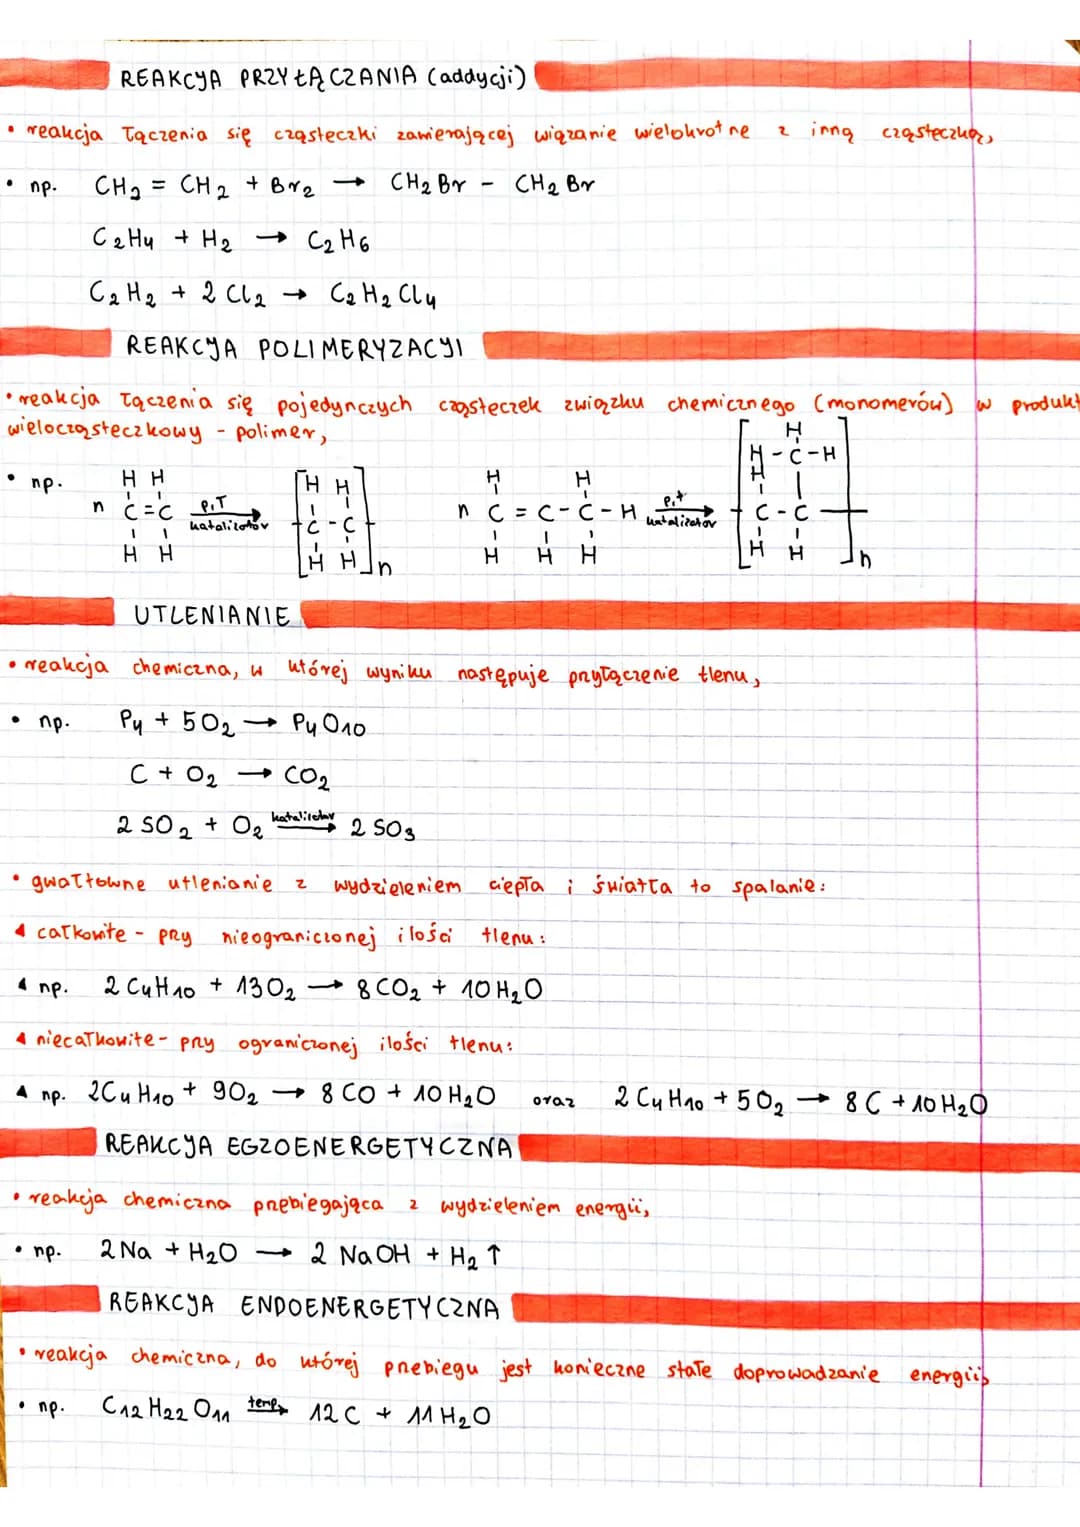 REAKCJA PRZYŁĄCZANIA (addycji)
• reakcja łączenia się cząsteczki zawierającej wiązanie wielokrotne z inną cząsteczką,
• np. CH₂ = CH₂ + Br₂ → CH₂Br - CH₂Br
C₂H₄ + H₂ → C₂H₆
C₂H₂ + 2 Cl₂ → C₂H₂Cl₄
REAKCJA POLIMERYZACJI
• reakcja łączenia się pojedynczych cząsteczek związku chemicznego (monomerów) w produkt
wielocząsteczkowy - polimer,
H
H H H H H H - C - H
• np. n C = C p,T → [ C - C ]n n C = C - C - H p,t → [ C - C ]n
katalizator katalizator
H H H H H H H H H
UTLENIANIE
• reakcja chemiczna, w której wyniku następuje przyłączenie tlenu,
• np. P₄ + 5O₂ → P₄O₁₀
C + O₂ → CO₂
2 SO₂ + O₂ katalizator → 2 SO₃
• gwałtowne utlenianie z wydzieleniem ciepła i światła to spalanie:
◂ całkowite - przy nieograniczonej ilości tlenu:
◂ np. 2 C₄H₁₀ + 13O₂ → 8CO₂ + 10H₂O
◂ niecałkowite - przy ograniczonej ilości tlenu:
▴ np. 2C₄H₁₀ + 9O₂ → 8 CO + 10H₂O oraz 2 C₄H₁₀ + 5O₂ → 8 C + 10H₂O
REAKCJA EGZOENERGETYCZNA
• reakcja chemiczna przebiegająca z wydzieleniem energii,
• np. 2 Na + H₂O → 2 NaOH + H₂ ↑
REAKCJA ENDOENERGETYCZNA
• reakcja chemiczna, do której przebiegu jest konieczne stałe doprowadzanie energii,
• np. C₁₂H₂₂O₁₁ temp. → 12 C + 11 H₂O